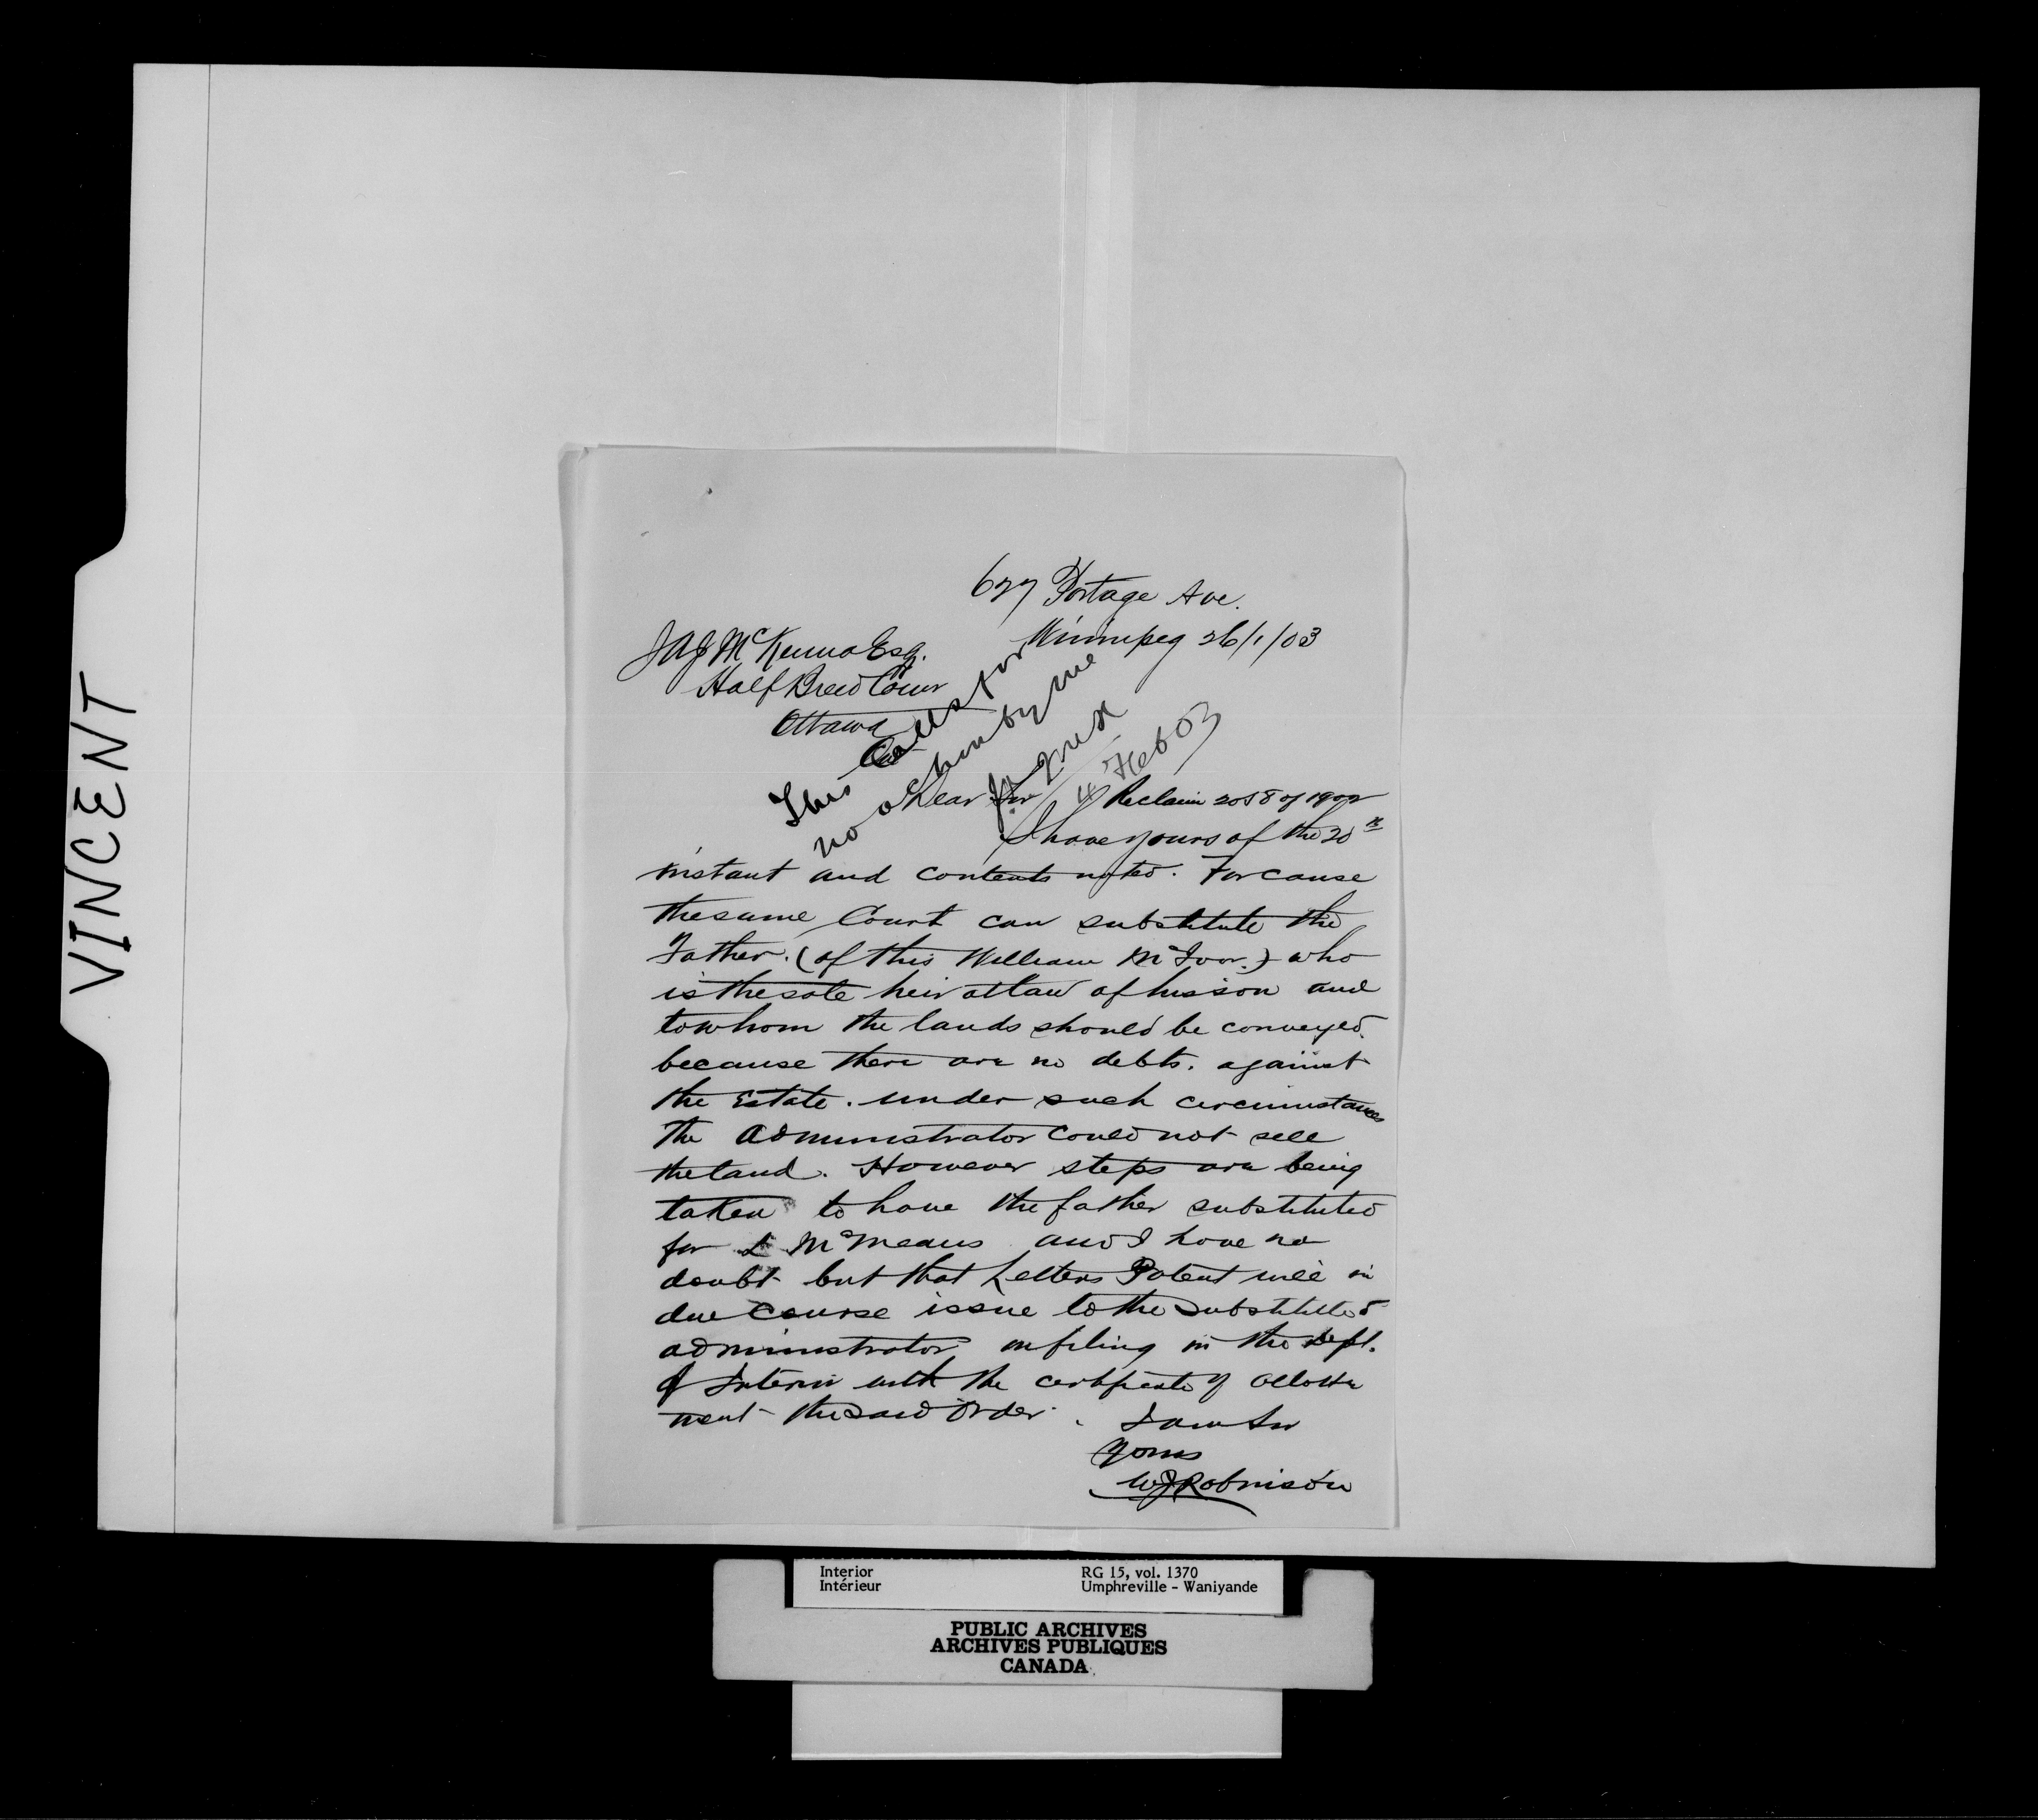 VINCENT
627 Portage Ave.
Winnipeg 26/1/03
JAJ McKenna Esq.
Half Breed Comr
Ottawa
This calls for
no action by me
4 Feb 03
Dear Sir Re claim 2058 of 1902
I have yours of the 20th
instant and contents noted. For cause
the same Court can substitute the
Father. (of this William McIvor.) who
is the sole heir at law of his son and
to whom the lands should be conveyed
because there are no debts. against
the Estate. under such circumstances
the administrator could not sell
the land. However steps are being
taken to have the father substituted
for L McMeans and I have no
doubt but that Letters Patent will in
due course issue to the substituted
administrator on filing in the Dept.
of Interior with the certificate of allot
ment the said Order. I am Sir
Yours
WJ Robinson
Interior RG 15, vol. 1370
Intérieur Umphreville - Waniyande
PUBLIC ARCHIVES
ARCHIVES PUBLIQUES
CANADA